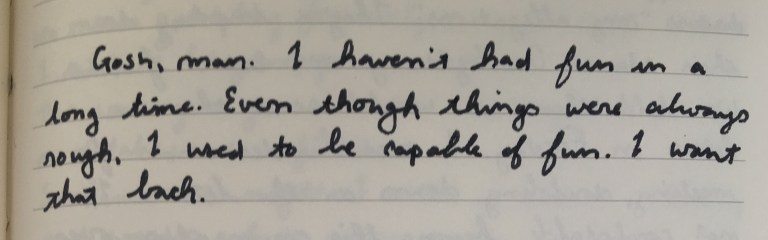 Gosh, man. I haven't had fun in a
long time. Even though things were always
rough, I used to be capable of fun. I want
that back.